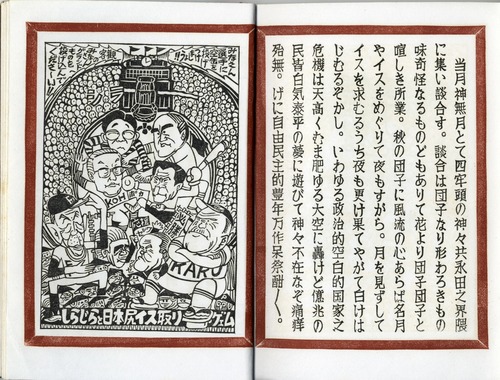 当月神無月とて四牢頭の神々共永田之界隈
に集い談合す。談合は団子なり形わろきもの
味奇怪なるものどもありて花より団子団子と
喧しき所業。秋の団子に風流の心あらば名月
やイスをめぐりて夜もすがら。月を見ずして
イスを求むるうち夜も更け果てやがて白けは
じむるぞかし。いわゆる政治的空白的国家之
危機は天高くむま肥ゆる大空に轟けど億兆の
民皆白気泰平の夢に遊びて神々不在なぞ痛痒
殆無。げに自由民主的豊年万作呆祭酣〳〵。
みなさん
空缶を
投げ
KOMEI
RARU
しらじらと日本尻イス取りゲーム